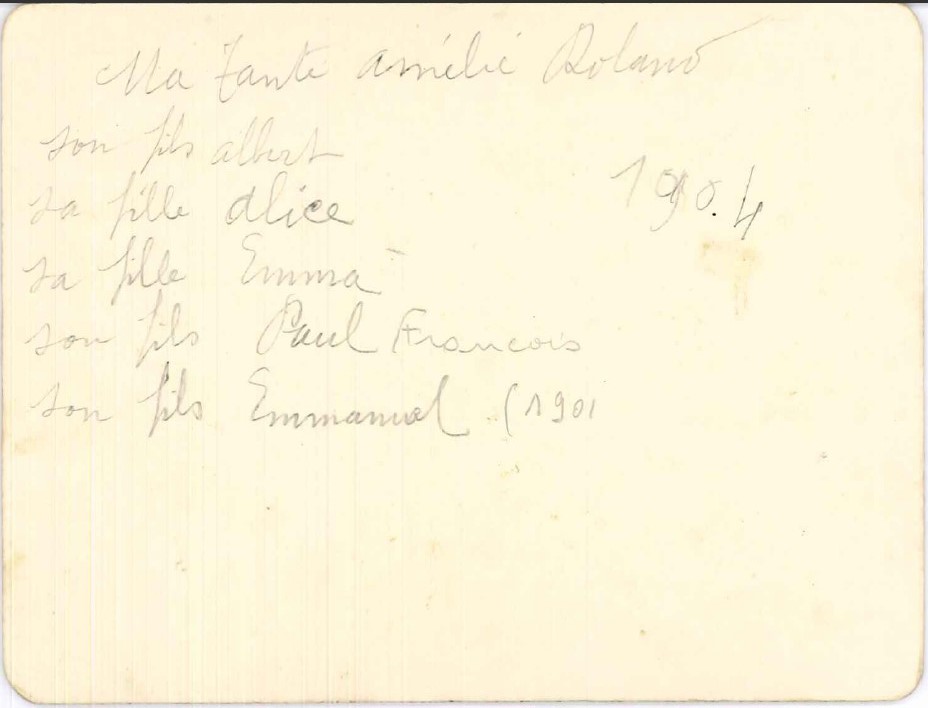 Ma Tante Amélie Roland
son fils albert
1904
sa fille alice
sa fille Emma
son fils Paul Francois
son fils Emmanuel (1901